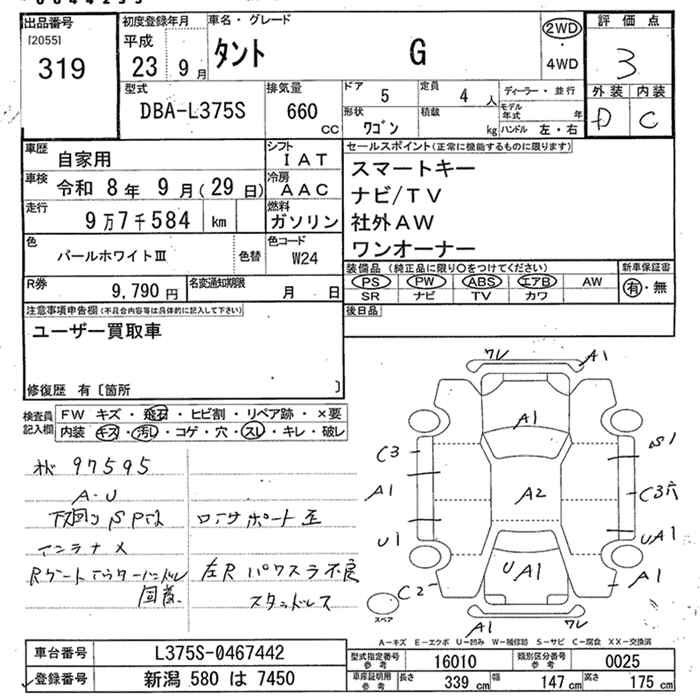 出品番号
[2055]
319
初度登録年月
平成
23 9 月
車名・グレード
タント G
2WD
・
4WD
評価点
3
外装 内装
D C
型式
DBA-L375S
排気量
660
cc
ドア 5
定員 4 人
形状 ワゴン
積載 kg
ディーラー・並行
モデル年式 年
ハンドル 左・右
車歴 自家用
シフト IAT
車検 令和 8年 9月(29日)
冷房 AAC
走行 9万7千584 km
燃料 ガソリン
色 パールホワイトⅢ 色替
色コード W24
R券 9,790 円
名変通知期限 月 日
セールスポイント(正常に機能するものに限ります)
スマートキー
ナビ/TV
社外AW
ワンオーナー
装備品(純正品に限り○をつけてください)
PS PW ABS エアB AW
SR ナビ TV カワ
新車保証書
有・無
後日品
注意事項申告欄(不具合内容等は具体的に記入して下さい)
ユーザー買取車
修復歴 有[箇所 ]
検査員記入欄
FW キズ・飛石・ヒビ割・リペア跡・×要
内装 キズ・汚レ・コゲ・穴・スレ・キレ・破レ
97595
A・U
下廻り S
コアサポート 歪
インテナメ
左R パワスラ不良
スタッドレス
ワレ A1
A1
C3 S1
A1 A2 C3穴
U1 UA1
UA1
C2 A1
スペア
A1 ワレ
A-キズ E-エクボ U-凹み W-補修跡 S-サビ C-腐食 XX-交換済
車台番号 L375S-0467442
登録番号 新潟 580 は 7450
型式指定番号 参考 16010
類別区分番号 参考 0025
車庫証明用 参考 長さ 339 cm 幅 147 cm 高さ 175 cm